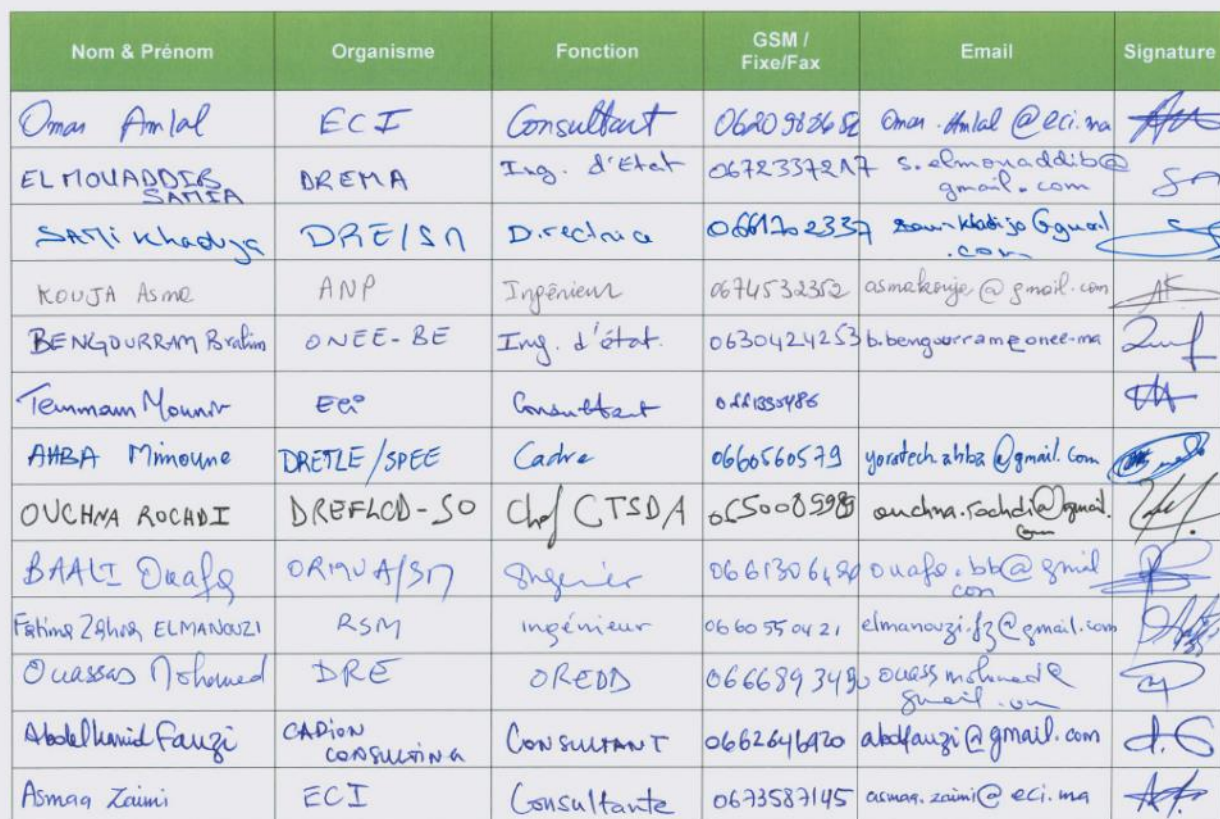 Nom & Prénom Organisme Fonction GSM / Fixe/Fax Email Signature
Omar Amlal ECI Consultant Omar.Amlal@eci.ma
EL MOUADDIB SAMIA DREMA Ing. d'Etat 0672337217 s.elmouaddib@gmail.com
SAMI Khadija DRE/SM Directrice 0661202337
KOUJA Asma ANP Ingénieur 0674532352 asmakouja@gmail.com
BENGOURRAM Brahim ONEE-BE Ing. d'état. 0630424253 b.bengourram@onee.ma
Temmam Mounir ECI Consultant
AHBA Mimoune DRETLE/SPEE Cadre 0660560579 yoratech.ahba@gmail.com
OUCHNA ROCHDI DREFLCD-SO Chef CTSDA ouchna.rochdi@gmail.com
BAALI Ouafa ORMVA/SM Ingenier ouafa.bb@gmail.com
Fatima Zahra ELMANOUZI RSM ingénieur 0660550421 elmanouzi.fz@gmail.com
Ouassas Mohamed DRE OREDD
Abdelhamid Fauzi CADION CONSULTING CONSULTANT abdfauzi@gmail.com
Asmaa Zaimi ECI Consultante 0673587145 asmaa.zaimi@eci.ma